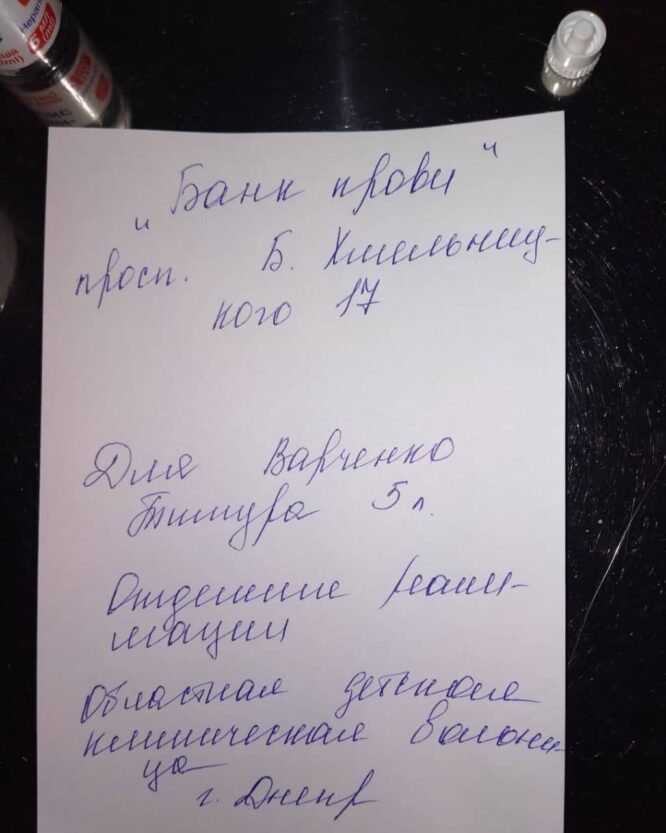 "Банк крови"
просп. Б. Хмельниц-
кого 17
Для Варченко
Тимура 5 л.
Отделение реани-
мации
Областная детская
клиническая больни-
ца
г. Днепр